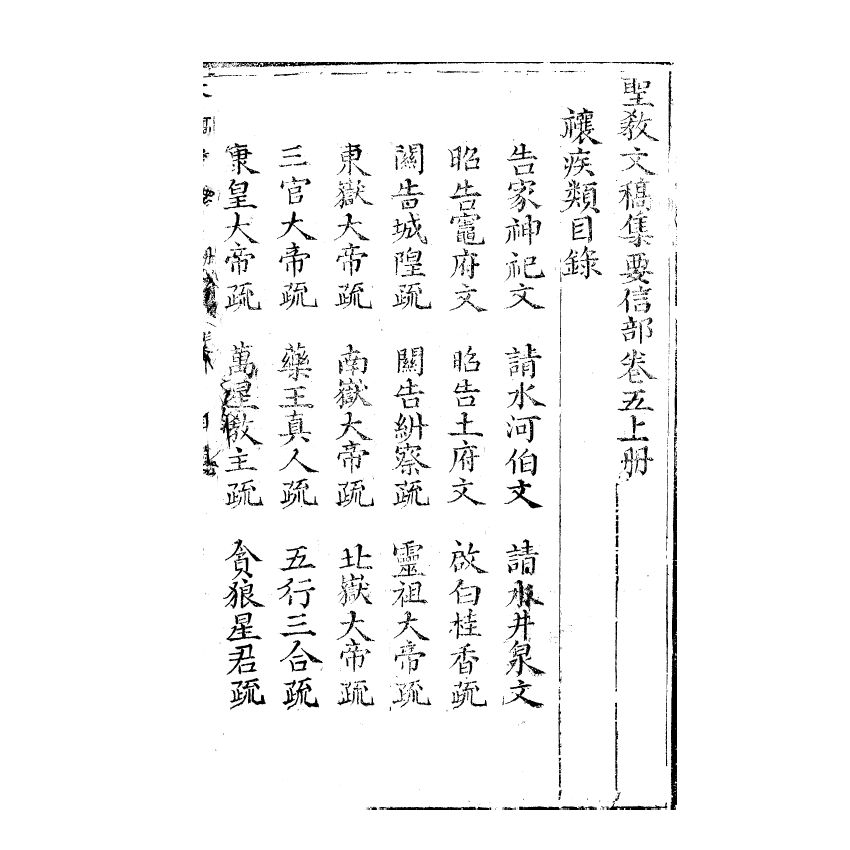 聖教文稿集要信部卷五上册
禳疾類目錄
告家神祀文 請水河伯文 請水井泉文
昭告竈府文 昭告土府文 啟白桂香疏
關告城隍疏 關告糾察疏 靈祖大帝疏
東嶽大帝疏 南嶽大帝疏 北嶽大帝疏
三官大帝疏 藥王真人疏 五行三合疏
東皇大帝疏 萬星教主疏 貪狼星君疏